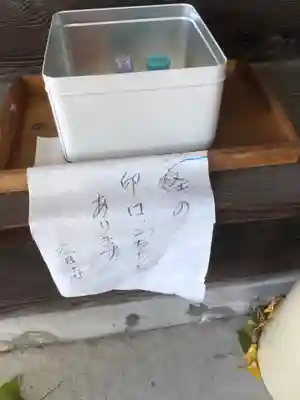 経の
印はこちらに
あります